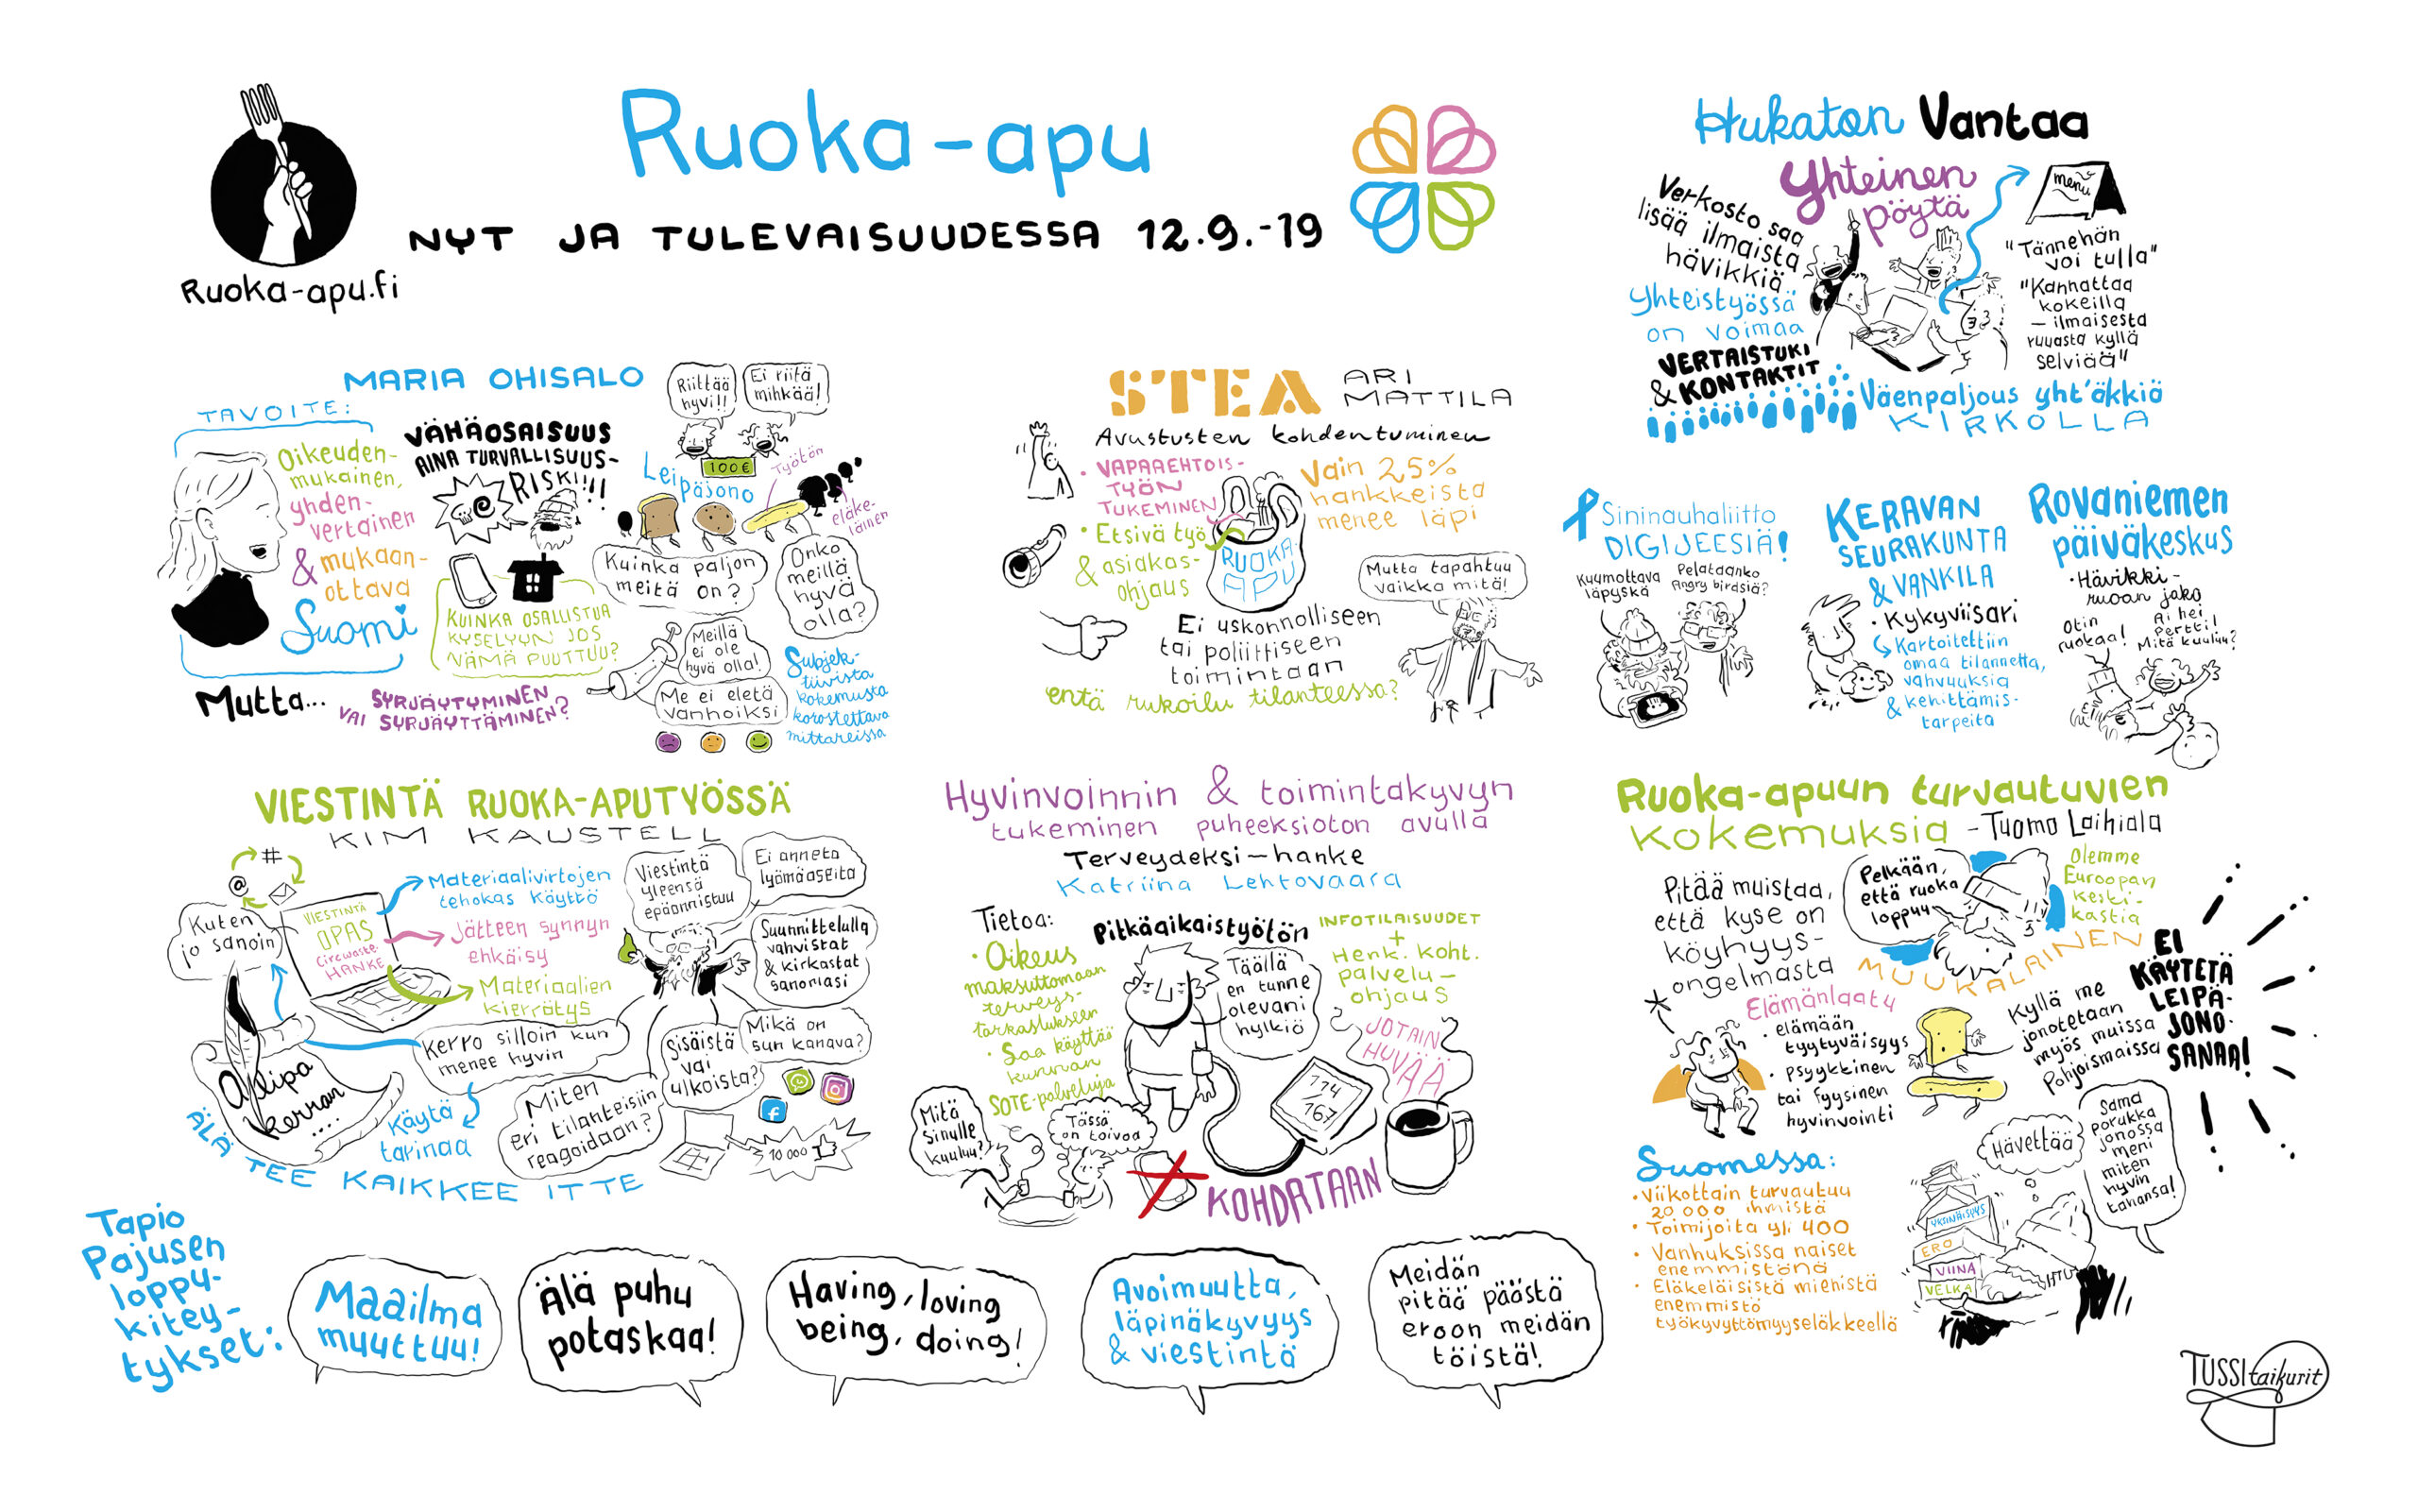 Ruoka-apu
NYT JA TULEVAISUUDESSA 12.9.-19
Ruoka-apu.fi
MARIA OHISALO
TAVOITE:
Oikeuden-
mukainen,
yhden-
vertainen
& mukaan-
ottava
Suomi
Mutta...
VÄHÄOSAISUUS
AINA TURVALLISUUS-
RISKI!!!
KUINKA OSALLISTUA
KYSELYYN JOS
NÄMÄ PUUTTUU?
SYRJÄYTYMINEN
VAI SYRJÄYTTÄMINEN?
Riittää
hyvi!!
Ei riitä
mihkää!
100€
Leipäjono
Työtön
eläke-
läinen
Kuinka paljon
meitä on?
Onko
meillä
hyvä
olla?
Meillä
ei ole
hyvä olla!
Me ei eletä
vanhoiksi
Subjek-
tiivista
kokemusta
korostettava
mittareissa
STEA
ARI
MATTILA
Avustusten kohdentuminen
• VAPAAEHTOIS-
TYÖN
TUKEMINEN
• Etsivä työ
& asiakas-
ohjaus
RUOKA-
APU
Vain 25%
hankkeista
menee läpi
Mutta tapahtuu
vaikka mitä!
Ei uskonnolliseen
tai poliittiseen
toimintaan
entä rukoilu tilanteessa?
Hukaton Vantaa
Yhteinen
pöytä
Verkosto saa
lisää ilmaista
hävikkiä
Yhteistyössä
on voimaa
VERTAISTUKI
& KONTAKTIT
menu
"Tännehän
voi tulla"
"Kannattaa
kokeilla
– ilmaisesta
ruuasta kyllä
selviää"
Väenpaljous yht'äkkiä
KIRKOLLA
Sininauhaliitto
DIGIJEESIÄ!
Kuumottava
läpyskä
Pelataanko
Angry birdsiä?
KERAVAN
SEURAKUNTA
& VANKILA
• Kykyviisari
Kartoitettiin
omaa tilannetta,
vahvuuksia
& kehittämis-
tarpeita
Rovaniemen
päiväkeskus
• Hävikki-
ruoan jako
Otin
ruokaa!
Ai hei
Pertti!
Mitä kuuluu?
VIESTINTÄ RUOKA-APUTYÖSSÄ
KIM KAUSTELL
#
@
Kuten
jo sanoin
VIESTINTÄ
OPAS
Circwaste-
HANKE
Materiaalivirtojen
tehokas käyttö
Jätteen synnyn
ehkäisy
Materiaalien
kierrätys
Viestintä
yleensä
epäonnistuu
Ei anneta
lyömäaseita
Suunnittelulla
vahvistat
& kirkastat
sanomasi
Kerro silloin kun
menee hyvin
Sisäistä
vai
ulkoista?
Mikä on
sun kanava?
Olipa
kerran
....
Käytä
tarinaa
Miten
eri tilanteisiin
reagoidaan?
10 000
ÄLÄ TEE KAIKKEE ITTE
Hyvinvoinnin & toimintakyvyn
tukeminen puheeksioton avulla
Terveydeksi-hanke
Katriina Lehtovaara
Tietoa:
• Oikeus
maksuttomaan
terveys-
tarkastukseen
• Saa käyttää
kunnan
SOTE-palveluja
Pitkäaikaistyötön
Täällä
en tunne
olevani
hylkiö
INFOTILAISUUDET
+
Henk. koht.
palvelu-
ohjaus
JOTAIN
HYVÄÄ
114
167
Mitä
sinulle
kuuluu?
Tässä
on toivoa
KOHDATAAN
Ruoka-apuun turvautuvien
kokemuksia - Tuomo Laihiala
Pitää muistaa,
että kyse on
köyhyys-
ongelmasta
Pelkään,
että ruoka
loppuu
Olemme
Euroopan
keski-
kastia
MUUKALAINEN
Elämänlaatu
• elämään
tyytyväisyys
• psyykkinen
tai fyysinen
hyvinvointi
Kyllä me
jonotetaan
myös muissa
Pohjoismaissa
EI
KÄYTETÄ
LEIPÄ-
JONO-
SANAA!
Suomessa:
• Viikottain turvautuu
20 000 ihmistä
• Toimijoita yli 400
• Vanhuksissa naiset
enemmistönä
• Eläkeläisistä miehistä
enemmistö
työkyvyttömyyseläkkeellä
Hävettää
Sama
porukka
jonossa
meni
miten
hyvin
tahansa!
YKSINÄISYYS
ERO
VIINA
VELKA
Tapio
Pajusen
loppu-
kitey-
tykset:
Maailma
muuttuu!
Älä puhu
potaskaa!
Having, loving
being, doing!
Avoimuutta,
läpinäkyvyys
& viestintä
Meidän
pitää päästä
eroon meidän
töistä!
TUSSItaikurit